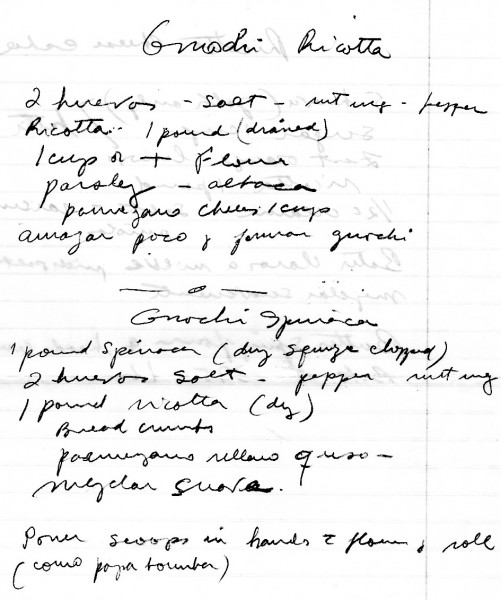 Gnochi Ricotta
2 huevos - salt - nutmg - pepper
Ricotta.. 1 pound (drained)
1 cup or + Flour
parsley - albaca
parmezano chees 1 cup
amazar poco y formar gnochi
Gnochi Spinaca
1 pound Spinaca (dry squize chopped)
2 huevos salt - pepper nutmg
1 pound ricotta (dry)
Bread crumbs
parmezano rellano queso -
mezclar suave.
Poner scoops in hands c flour y roll
(como papa bomba)